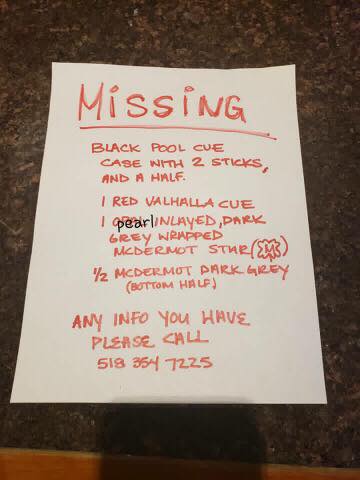 MISSING
BLACK POOL CUE
CASE WITH 2 STICKS,
AND A HALF.
1 RED VALHALLA CUE
1 pearl INLAYED, DARK
GREY WRAPPED
MCDERMOT STAR (M)
1/2 MCDERMOT DARK GREY
(BOTTOM HALF)
ANY INFO YOU HAVE
PLEASE CALL
518 354 7225